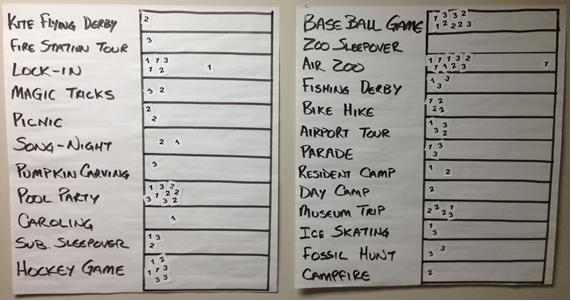 KITE FLYING DERBY 2
FIRE STATION TOUR 3
LOCK-IN 1 1 3 1
1 2
MAGIC TRICKS 3 2
PICNIC 2
2
SONG-NIGHT 2 1
PUMPKIN CARVING 3
POOL PARTY 1 3
3 1 2 2
3 2
CAROLING 1
SUB. SLEEPOVER 1 3
2
HOCKEY GAME 1 2
1 1 3
3 3
BASE BALL GAME 1 3 3 2
1 2 2 2 3
ZOO SLEEPOVER
AIR ZOO 1 1 1 3 2 1
1 1 2 3
FISHING DERBY 1 3
3
BIKE HIKE 1 2
2 2
AIRPORT TOUR 1 3
3 2
PARADE 1 3
3
RESIDENT CAMP 1 2
DAY CAMP 2
MUSEUM TRIP 2 2 2 1
3
ICE SKATING 1
3
FOSSIL HUNT 3 3
CAMPFIRE 2